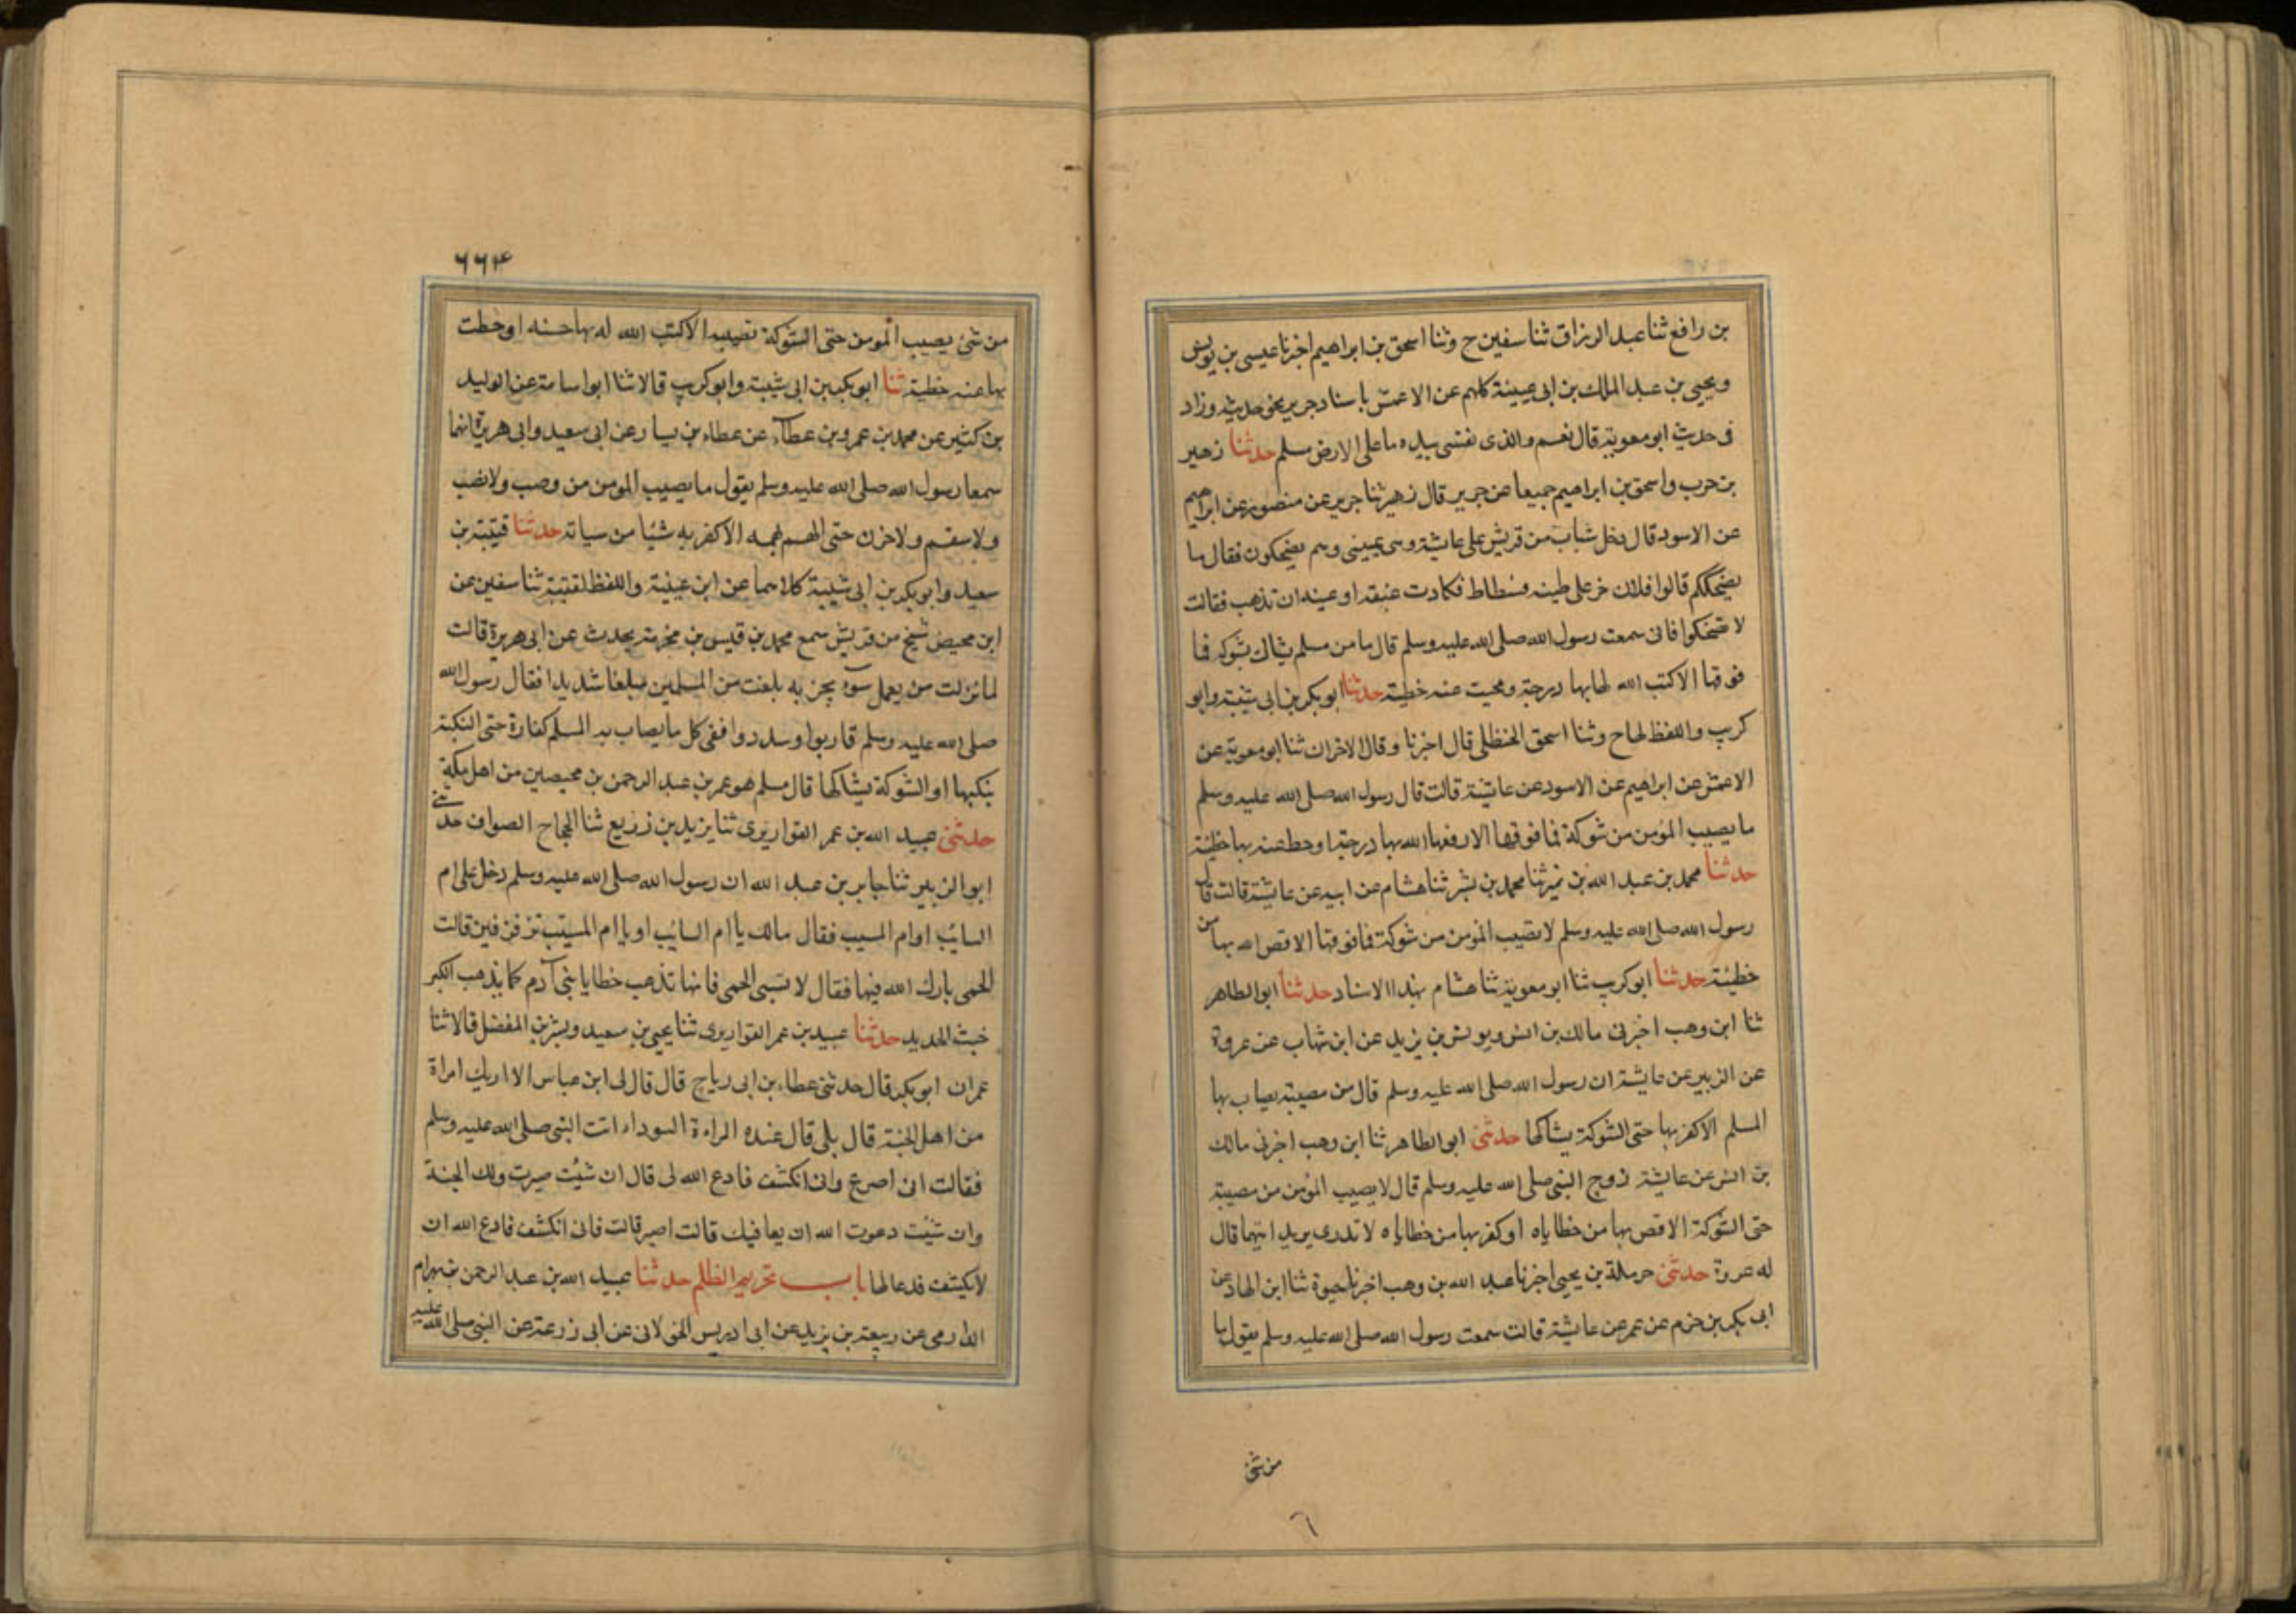 بن رافع ثنا عبد الرزاق ثنا سفين ح وثنا اسحق بن ابراهيم اخبرنا عيسى بن يونس
ويحيى بن عبد الملك بن ابى عيينة كلهم عن الاعمش باسناد جرير نحو حديثه وزاد
فى حديث ابو معوية قال نعم والذى نفسى بيده ما على الارض مسلم حدثنا زهير
بن حرب واسحق بن ابراهيم جميعا عن جرير قال زهير ثنا جرير عن منصور عن ابراهيم
عن الاسود قال دخل شباب من قريش على عايشة وهى بمينى وهم يضحكون فقال ما
يضحككم قالوا فلان خر على طينه فسطاط فكادت عنقه او عينه ان تذهب فقالت
لا تضحكوا فانى سمعت رسول الله صلى الله عليه وسلم قال ما من مسلم يشاك بشوكه فما
فوقها الا كتب الله لها بها درجة ومحيت عنه خطيئة حدثنا ابو بكر بن ابى شيبة وابو
كريب واللفظ لهما ح وثنا اسحق الحنظلى قال اخبرنا وقال الاخران ثنا ابو معوية عن
الاعمش عن ابراهيم عن الاسود عن عايشة قالت قال رسول الله صلى الله عليه وسلم
ما يصيب المؤمن من شوكة فما فوقها الا رفعها الله بها درجة او حط عنه بها خطيئة
حدثنا محمد بن عبد الله بن نمير ثنا محمد بن بشر ثنا هشام عن ابيه عن عايشة قالت قال
رسول الله صلى الله عليه وسلم لا تصيب المؤمن من شوكة فما فوقها الا قص الله بها من
خطيئة حدثنا ابو كريب ثنا ابو معوية ثنا هشام بهذا الاسناد حدثنا ابو الطاهر
ثنا ابن وهب اخبرنى مالك بن انس ويونس بن يزيد عن ابن شهاب عن عروة
عن الزبير عن عايشة ان رسول الله صلى الله عليه وسلم قال من مصيبة يصاب بها
المسلم الا كفر بها حتى الشوكة يشاكها حدثنى ابو الطاهر ثنا ابن وهب اخبرنى مالك
بن انس عن عايشة زوج النبى صلى الله عليه وسلم قال لا يصيب المؤمن من مصيبة
حتى الشوكة الا قص بها من خطاياه او كفر بها من خطاياه لا تدرى يزيد ايتهما قال
له عروة حدثنى حرملة بن يحيى اخبرنا عبد الله بن وهب اخبرنا حيوة ثنا ابن الهاد عن
ابى بكر بن حزم عن عمر عن عايشة قالت سمعت رسول الله صلى الله عليه وسلم يقول ما
من شئ
٦
٦٦٤
من شئ يصيب المومن حتى الشوكة تصيبه الا كتب الله له بها حسنه او حطت
بها عنه خطية ثنا ابو بكر بن ابى شيبة وابو كريب قالا ثنا ابو اسامة عن الوليد
بن كثير عن محمد بن عمرو بن عطآء عن عطاء بن يسار عن ابى سعيد وابى هريرة انهما
سمعا رسول الله صلى الله عليه وسلم يقول ما يصيب المومن من وصب ولا نصب
ولا سقم ولا حزن حتى الهم يهمه الا كفر به شيئا من سياته حدثنا قتيبة بن
سعيد وابو بكر بن ابى شيبة كلاهما عن ابن عيينة واللفظ لقتيبة ثنا سفين عن
ابن محيص شيخ من قريش سمع محمد بن قيس بن مخرمة يحدث عن ابى هريرة قالت
لما نزلت من يعمل سوء يجز به بلغت من المسلمين مبلغا شديدا فقال رسول الله
صلى الله عليه وسلم قاربوا وسددوا ففى كل ما يصاب به المسلم كفارة حتى النكبة
ينكبها او الشوكة يشاكها قال مسلم هو عمر بن عبد الرحمن بن محيصين من اهل مكة
حدثنى عبيد الله بن عمر القواريرى ثنا يزيد بن زريع ثنا الحجاج الصواف حدثنى
ابو الزبير ثنا جابر بن عبد الله ان رسول الله صلى الله عليه وسلم دخل على ام
السائب او ام المسيب فقال مالك يا ام السائب او يا ام المسيب تزفزفين قالت
الحمى بارك الله فيها فقال لا تسبى الحمى فانها تذهب خطايا بنى آدم كما يذهب الكير
خبث الحديد حدثنا عبيد بن عمر القواريرى ثنا يحيى بن سعيد وبشر بن المفضل قالا ثنا
عمران ابو بكر قال حدثنى عطاء بن ابى رباح قال قال لى ابن عباس الا اريك امراة
من اهل الجنة قال بلى قال عنده المراءة السوداء اتت النبى صلى الله عليه وسلم
فقالت انى اصرع وانى انكشف فادع الله لى قال ان شئت صبرت ولك الجنة
وان شئت دعوت الله ان يعافيك قالت اصبر قالت فانى انكشف فادع الله ان
لا يكشف فدعا لها باب تحريم الظلم حدثنا عبيد الله بن عبد الرحمن بن بهرام
الدارمى عن ربيعة بن يزيد عن ابى ادريس الخولانى عن ابى زرعة عن النبى صلى الله عليه